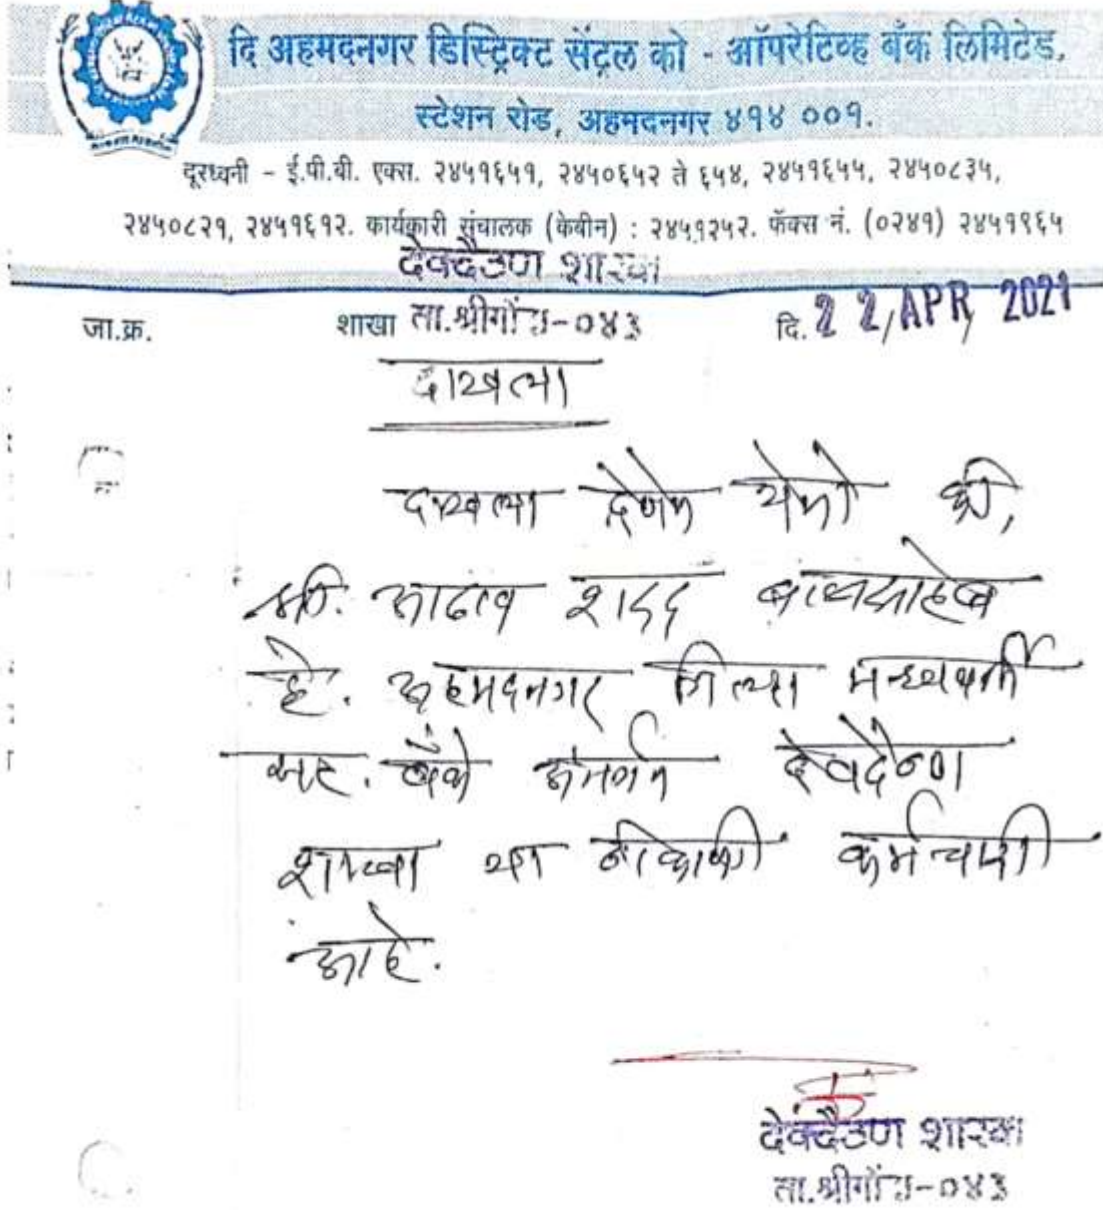 दि अहमदनगर डिस्ट्रिक्ट सेंट्रल को - ऑपरेटिव्ह बँक लिमिटेड,
स्टेशन रोड, अहमदनगर ४१४ ००१.
दूरध्वनी - ई.पी.बी. एक्स. २४५१६५१, २४५०६५२ ते ६५४, २४५१६५५, २४५०८३५,
२४५०८२१, २४५१६१२. कार्यकारी संचालक (केबीन) : २४५१२५२. फॅक्स नं. (०२४१) २४५१९६५
देवदैठण शाखा
जा.क्र. शाखा ता.श्रीगोंदा-०४३ दि. 2 2 APR 2021
दाखला
दाखला देणेत येतो की,
श्री. आढाव शरद बाळासाहेब
हे. अहमदनगर जिल्हा मध्यवर्ती
सह. बँके अंतर्गत देवदैठण
शाखा या ठिकाणी कर्मचारी
आहे.
देवदैठण शाखा
ता.श्रीगोंदा-०४३